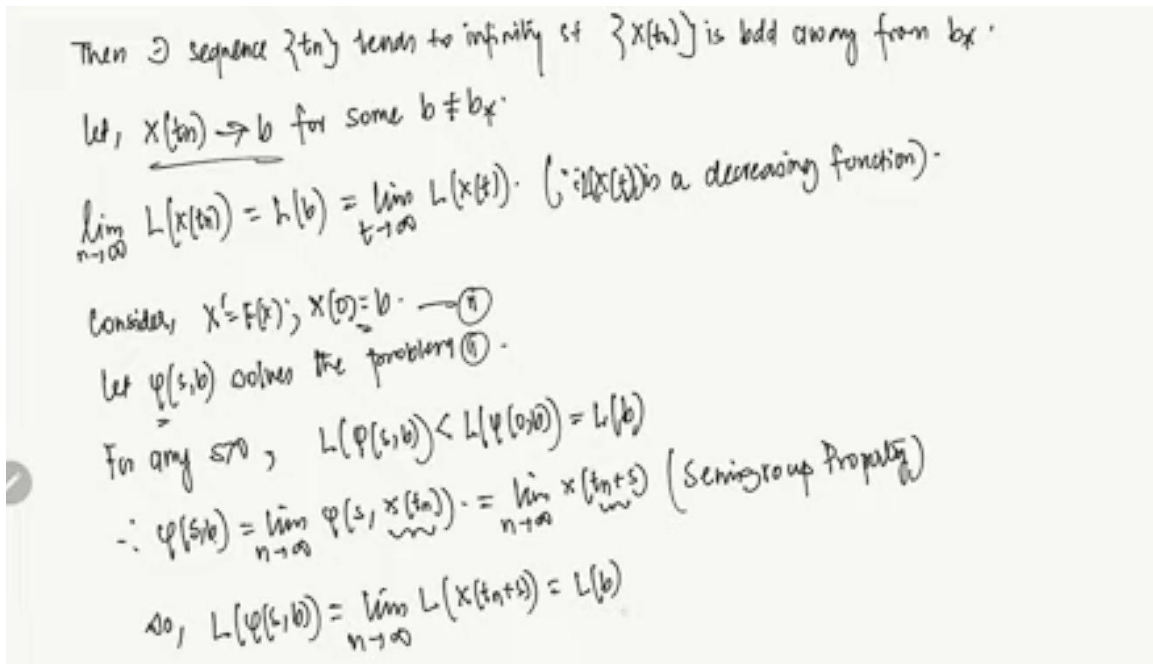 Then ∃ sequence {tn} tends to infinity st {x(tn)} is bdd away from b*.
let, x(tn) → b for some b ≠ b*.
lim n→∞ L(x(tn)) = L(b) = lim t→∞ L(x(t)). (∵ L(x(t)) is a decreasing function).
Consider, x' = F(x); x(0) = b. — ⓘ
let φ(s,b) solves the problem ⓘ.
For any s>0, L(φ(s,b)) < L(φ(0,b)) = L(b)
∴ φ(s,b) = lim n→∞ φ(s, x(tn)). = lim n→∞ x(tn+s) (Semigroup Property)
so, L(φ(s,b)) = lim n→∞ L(x(tn+s)) = L(b)